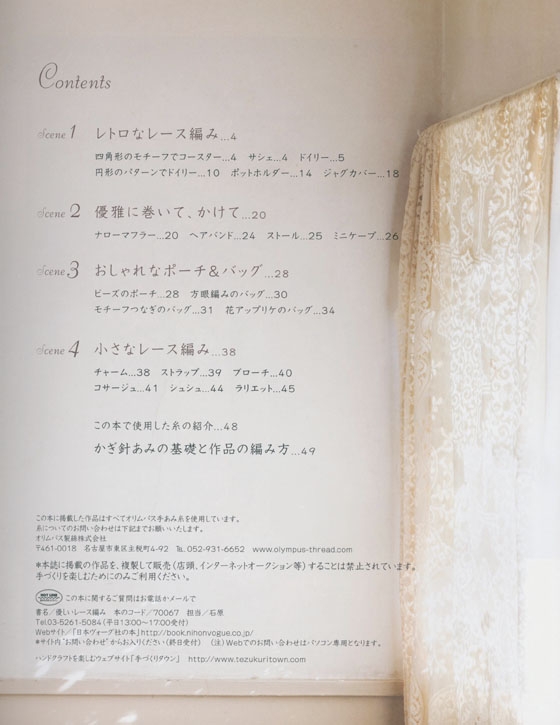 Contents
Scene 1 レトロなレース編み...4
四角形のモチーフでコースター...4 サシェ...4 ドイリー...5
円形のパターンでドイリー...10 ポットホルダー...14 ジャグカバー...18
Scene 2 優雅に巻いて、かけて...20
ナローマフラー...20 ヘアバンド...24 ストール...25 ミニケープ...26
Scene 3 おしゃれなポーチ&バッグ...28
ビーズのポーチ...28 方眼編みのバッグ...30
モチーフつなぎのバッグ...31 花アップリケのバッグ...34
Scene 4 小さなレース編み...38
チャーム...38 ストラップ...39 ブローチ...40
コサージュ...41 シュシュ...44 ラリエット...45
この本で使用した糸の紹介...48
かぎ針あみの基礎と作品の編み方...49
この本に掲載した作品はすべてオリムパス手あみ糸を使用しています。
糸についてのお問い合わせは下記までお願いいたします。
オリムパス製絲株式会社
〒461-0018 名古屋市東区主税町4-92 TEL 052-931-6652 www.olympus-thread.com
*本誌に掲載の作品を、複製して販売(店頭、インターネットオークション等)することは禁止されています。
手づくりを楽しむためにのみご利用ください。
この本に関するご質問はお電話かメールで
書名/優しいレース編み 本のコード/70067 担当/石原
Tel.03-5261-5084(平日13:00〜17:00受付)
Webサイト/「日本ヴォーグ社の本」http://book.nihonvogue.co.jp/
*サイト内"お問い合わせ"からお入りください(終日受付) (注)Webでのお問い合わせはパソコン専用となります。
ハンドクラフトを楽しむウェブサイト「手づくりタウン」 http://www.tezukuritown.com/